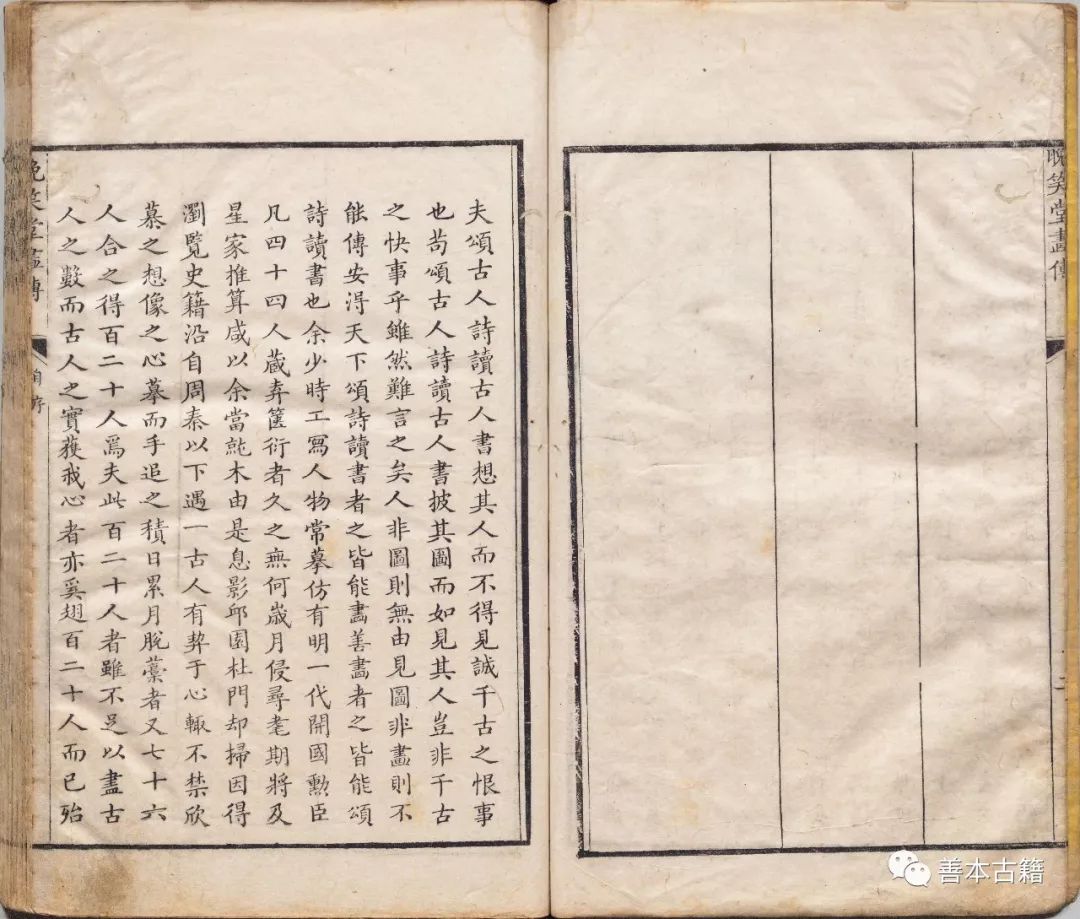 晩笑堂畫傳
二
夫頌古人詩讀古人書想其人而不得見誠千古之恨事
也苟頌古人詩讀古人書披其圖而如見其人豈非千古
之快事乎雖然難言之矣人非圖則無由見圖非畫則不
能傳安淂天下頌詩讀書者之皆能畫善畫者之皆能頌
詩讀書也余少時工寫人物常摹仿有明一代開國勲臣
凡四十四人蔵弆篋衍者久之無何歲月侵尋耄期將及
星家推算咸以余當就木由是息影邱園杜門却掃因得
瀏覧史籍沿自周秦以下遇一古人有契于心輙不禁欣
慕之想像之心摹而手追之積日累月脫藁者又七十六
人合之得百二十人焉夫此百二十人者雖不足以盡古
人之數而古人之實獲我心者亦奚翅百二十人而已殆
晩笑堂畫傳
自序
善本古籍